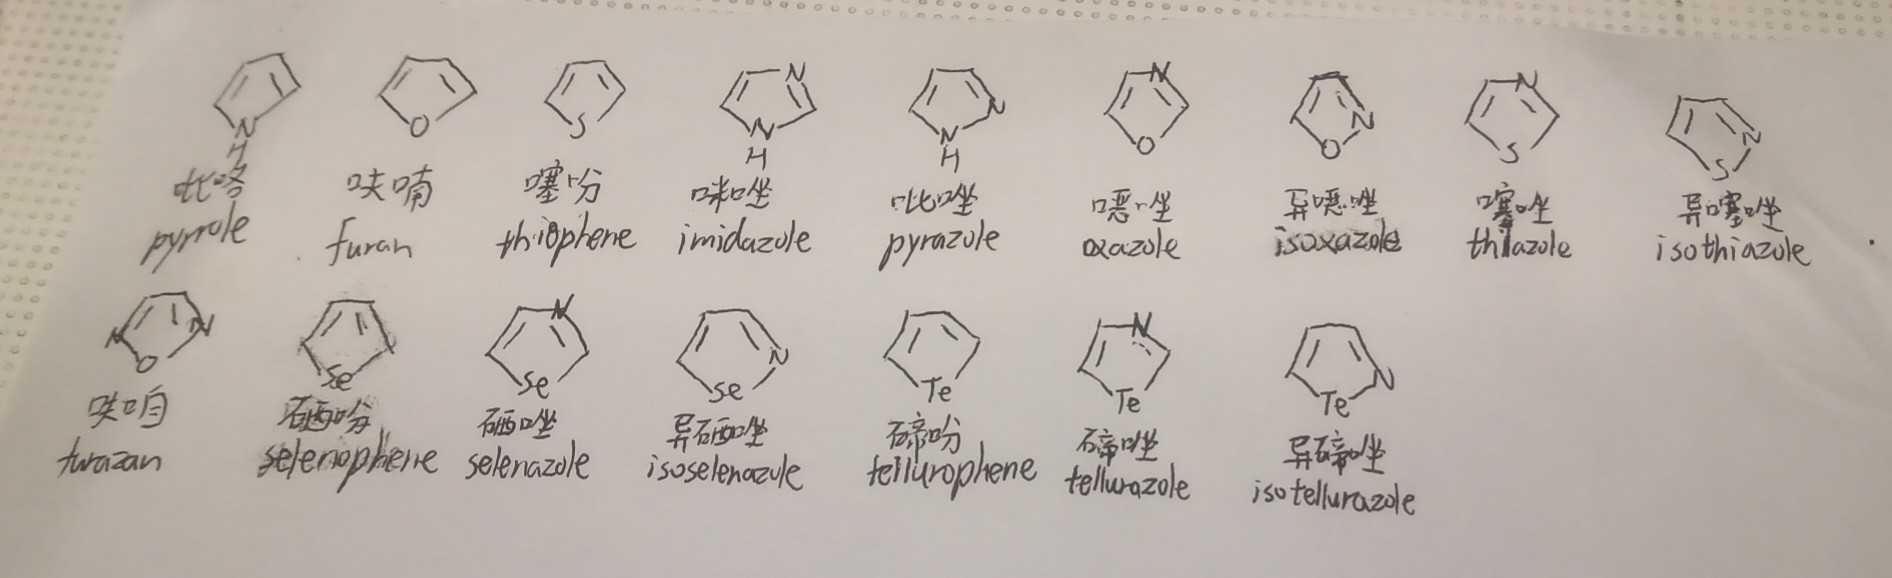 N N N N N N N
N H O S N H N H O O S S
吡咯 呋喃 噻吩 咪唑 吡唑 噁唑 异噁唑 噻唑 异噻唑
pyrrole furan thiophene imidazole pyrazole oxazole isoxazole thiazole isothiazole
N N N N N N
O Se Se Se Te Te Te
呋咱 硒吩 硒唑 异硒唑 碲吩 碲唑 异碲唑
furazan selenophene selenazole isoselenazole tellurophene tellurazole isotellurazole